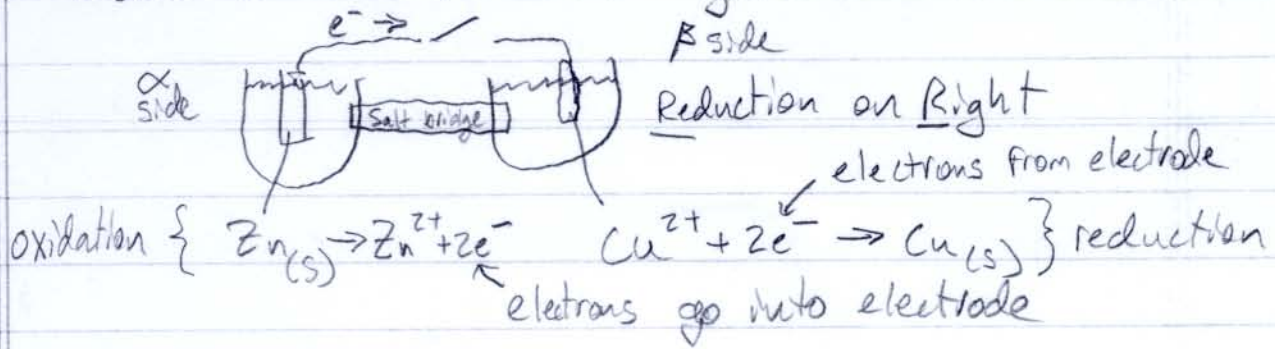 e⁻ →
α side
β side
Salt bridge
Reduction on Right
electrons from electrode
oxidation { Zn(s) → Zn²⁺ + 2e⁻
Cu²⁺ + 2e⁻ → Cu(s) } reduction
eletrons go into electrode